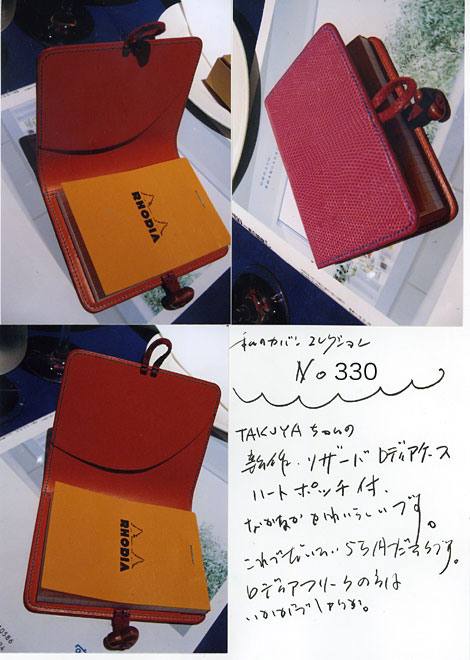 RHODIA
RHODIA
私のカバンコレクション
No 330
TAKUYAちゃんの
新作.リザード ロディアケース
ハートポッチ付.
なかなかかわいらしいです。
これでだいたい 5万円だそうです。
ロディアフリークの方は
いかがでしょうか。